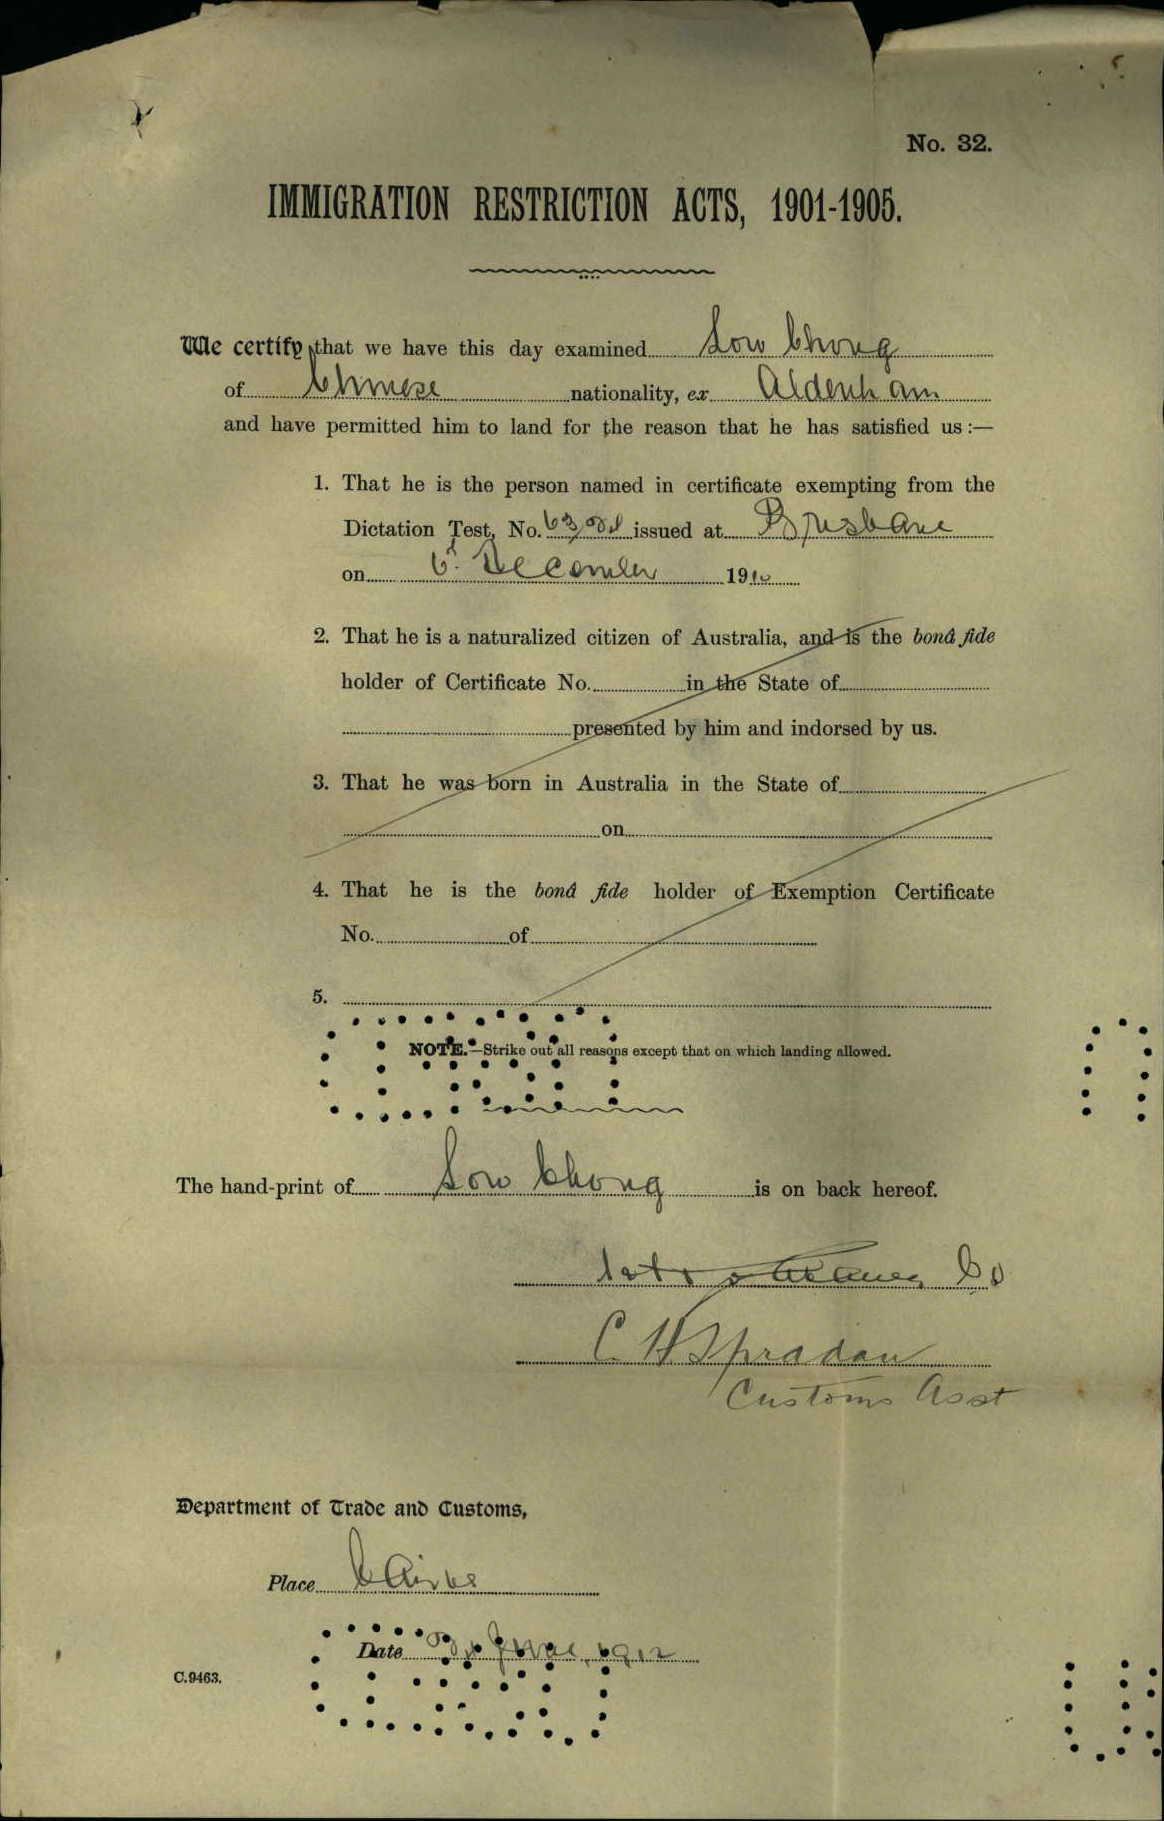 No. 32.
IMMIGRATION RESTRICTION ACTS, 1901-1905.
We certify that we have this day examined Sow Chong
of Chinese nationality, ex Aldenham
and have permitted him to land for the reason that he has satisfied us :—
1. That he is the person named in certificate exempting from the
Dictation Test, No. issued at Brisbane
on December 1910
2. That he is a naturalized citizen of Australia, and is the bonâ fide
holder of Certificate No. in the State of
presented by him and indorsed by us.
3. That he was born in Australia in the State of
on
4. That he is the bonâ fide holder of Exemption Certificate
No. of
5.
NOTE.—Strike out all reasons except that on which landing allowed.
The hand-print of Sow Chong is on back hereof.
C. H. Spradau
Customs Asst
Department of Trade and Customs,
Place Cairns
Date 1912
C.9463.